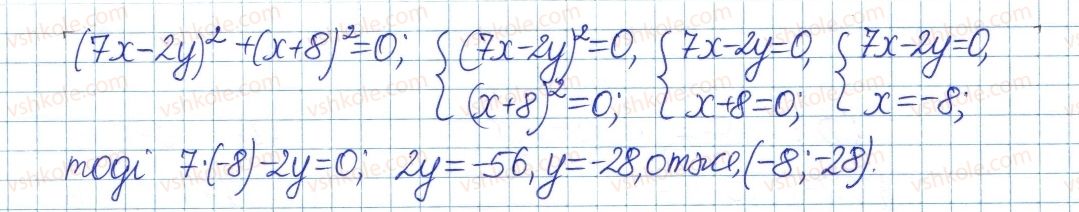 (7x-2y)²+(x+8)²=0; { (7x-2y)²=0, (x+8)²=0; { 7x-2y=0, x+8=0; { 7x-2y=0, x=-8;
тоді 7·(-8)-2y=0; 2y=-56, y=-28, отже, (-8;-28).